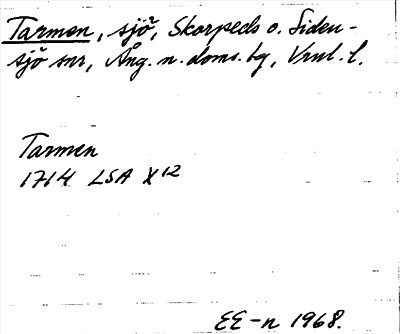 Tarmen, sjö, Skorpeds o. Siden-
sjö snr, Ång. n. doms. bg, Vrnl. l.
Tarmen
1714 LSA X12
EE-n 1968.